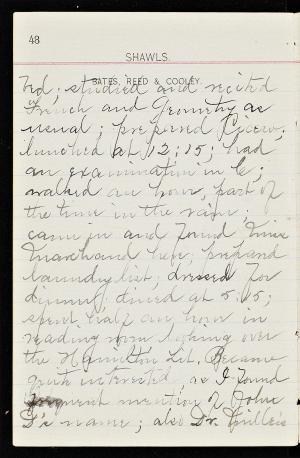 48
SHAWLS.
BATES, REED & COOLEY.
studied and recited
French and Geometry as
usual; prepared Cicero;
lunched at 12:15; had
an examination in C;
walked an hour, part of
the time in the rain.
came in and found Miss
Marchand here; prepared
laundry list; dressed for
dinner; dined at 5:15;
spent half an hour in
reading room looking over
the Hamilton Lit. Became
quite interested, as I found
frequent mention of John
G's name; also Dr.